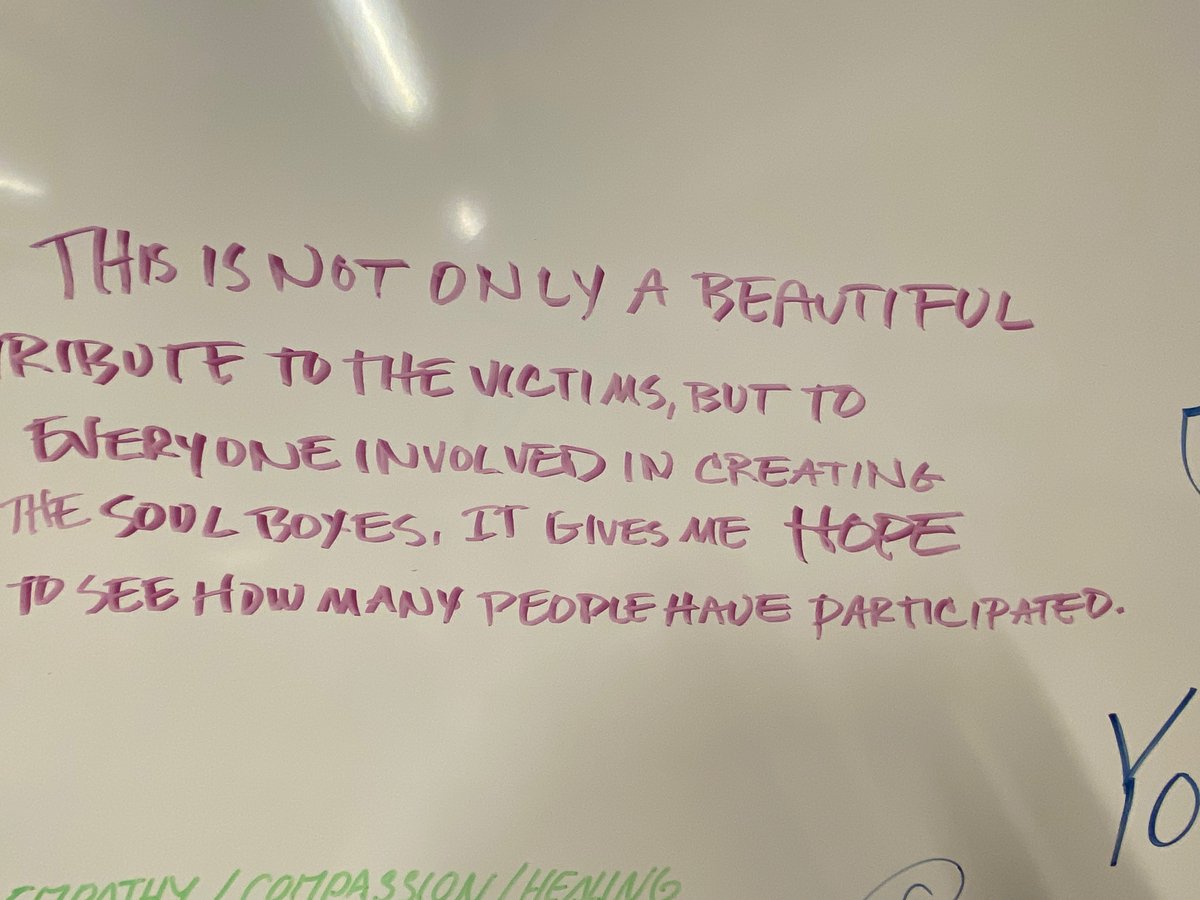 THIS IS NOT ONLY A BEAUTIFUL
TRIBUTE TO THE VICTIMS, BUT TO
EVERYONE INVOLVED IN CREATING
THE SOUL BOXES. IT GIVES ME HOPE
TO SEE HOW MANY PEOPLE HAVE PARTICIPATED.
YO
EMPATHY / COMPASSION / HEALING